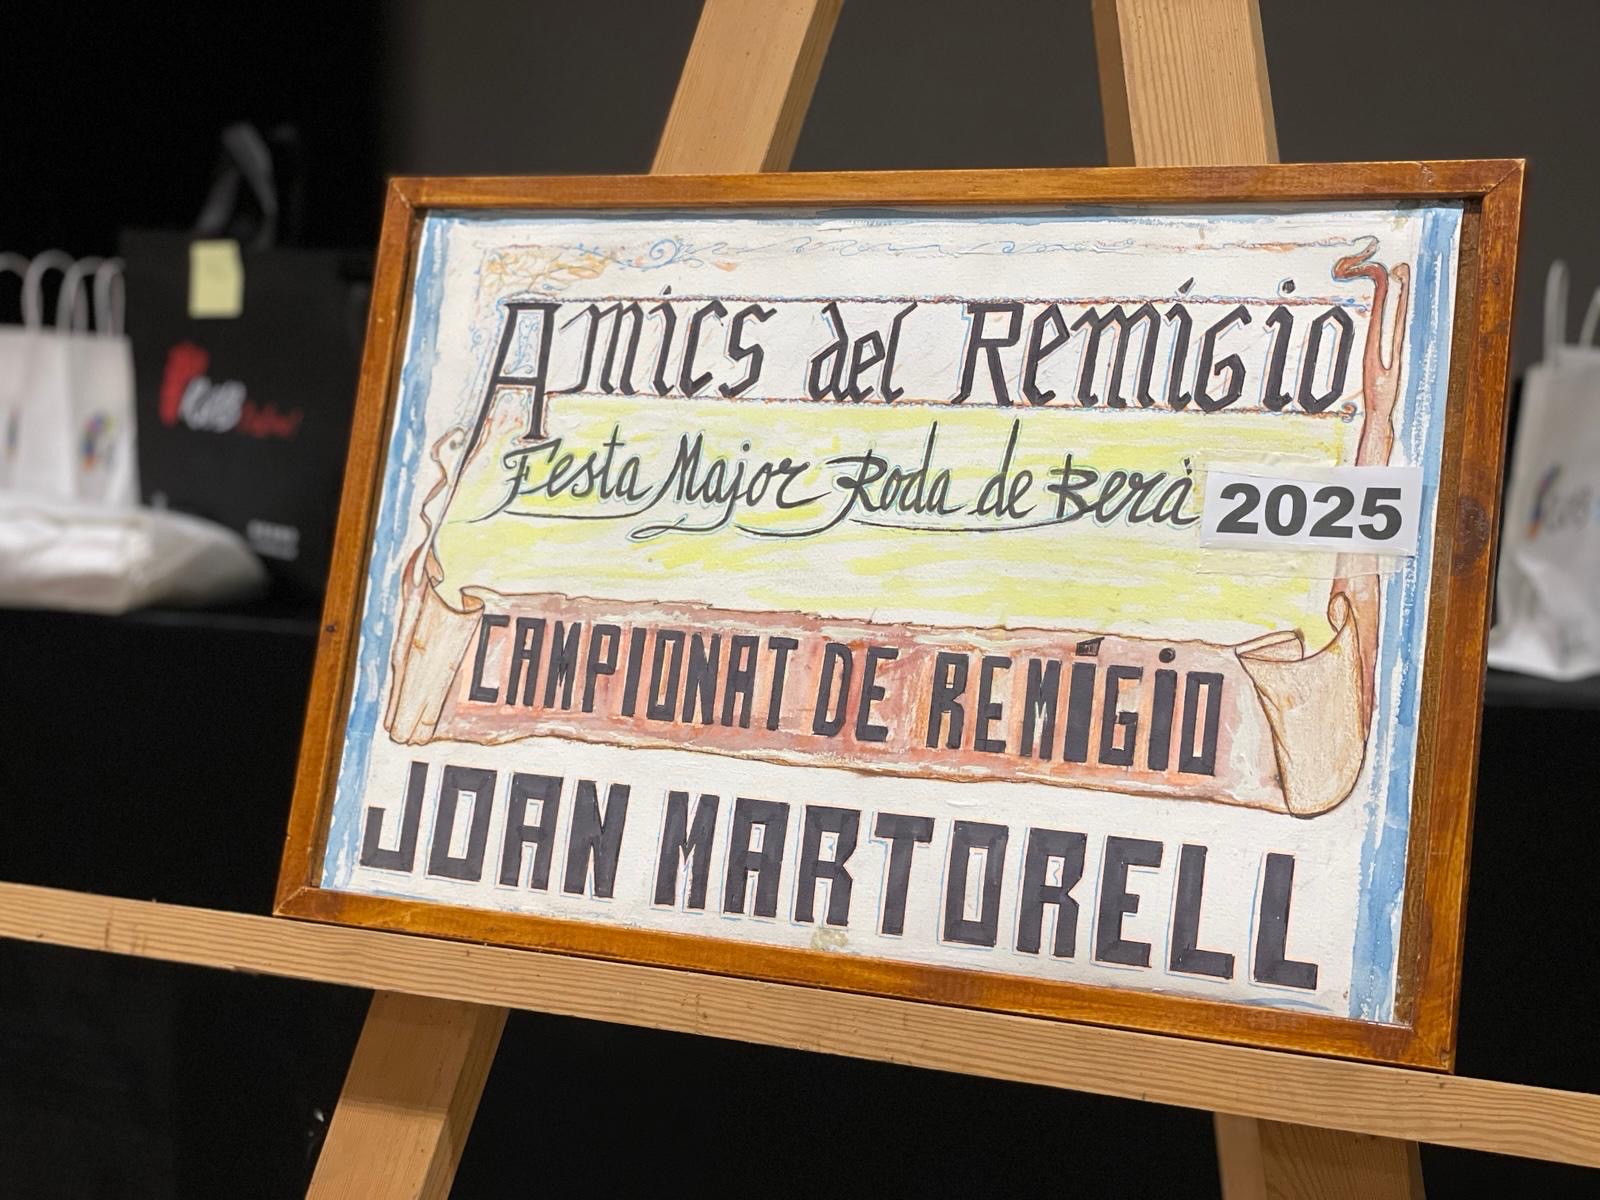 Amics del Remígio
Festa Major Roda de Berà 2025
CAMPIONAT DE REMÍGIO
JOAN MARTORELL